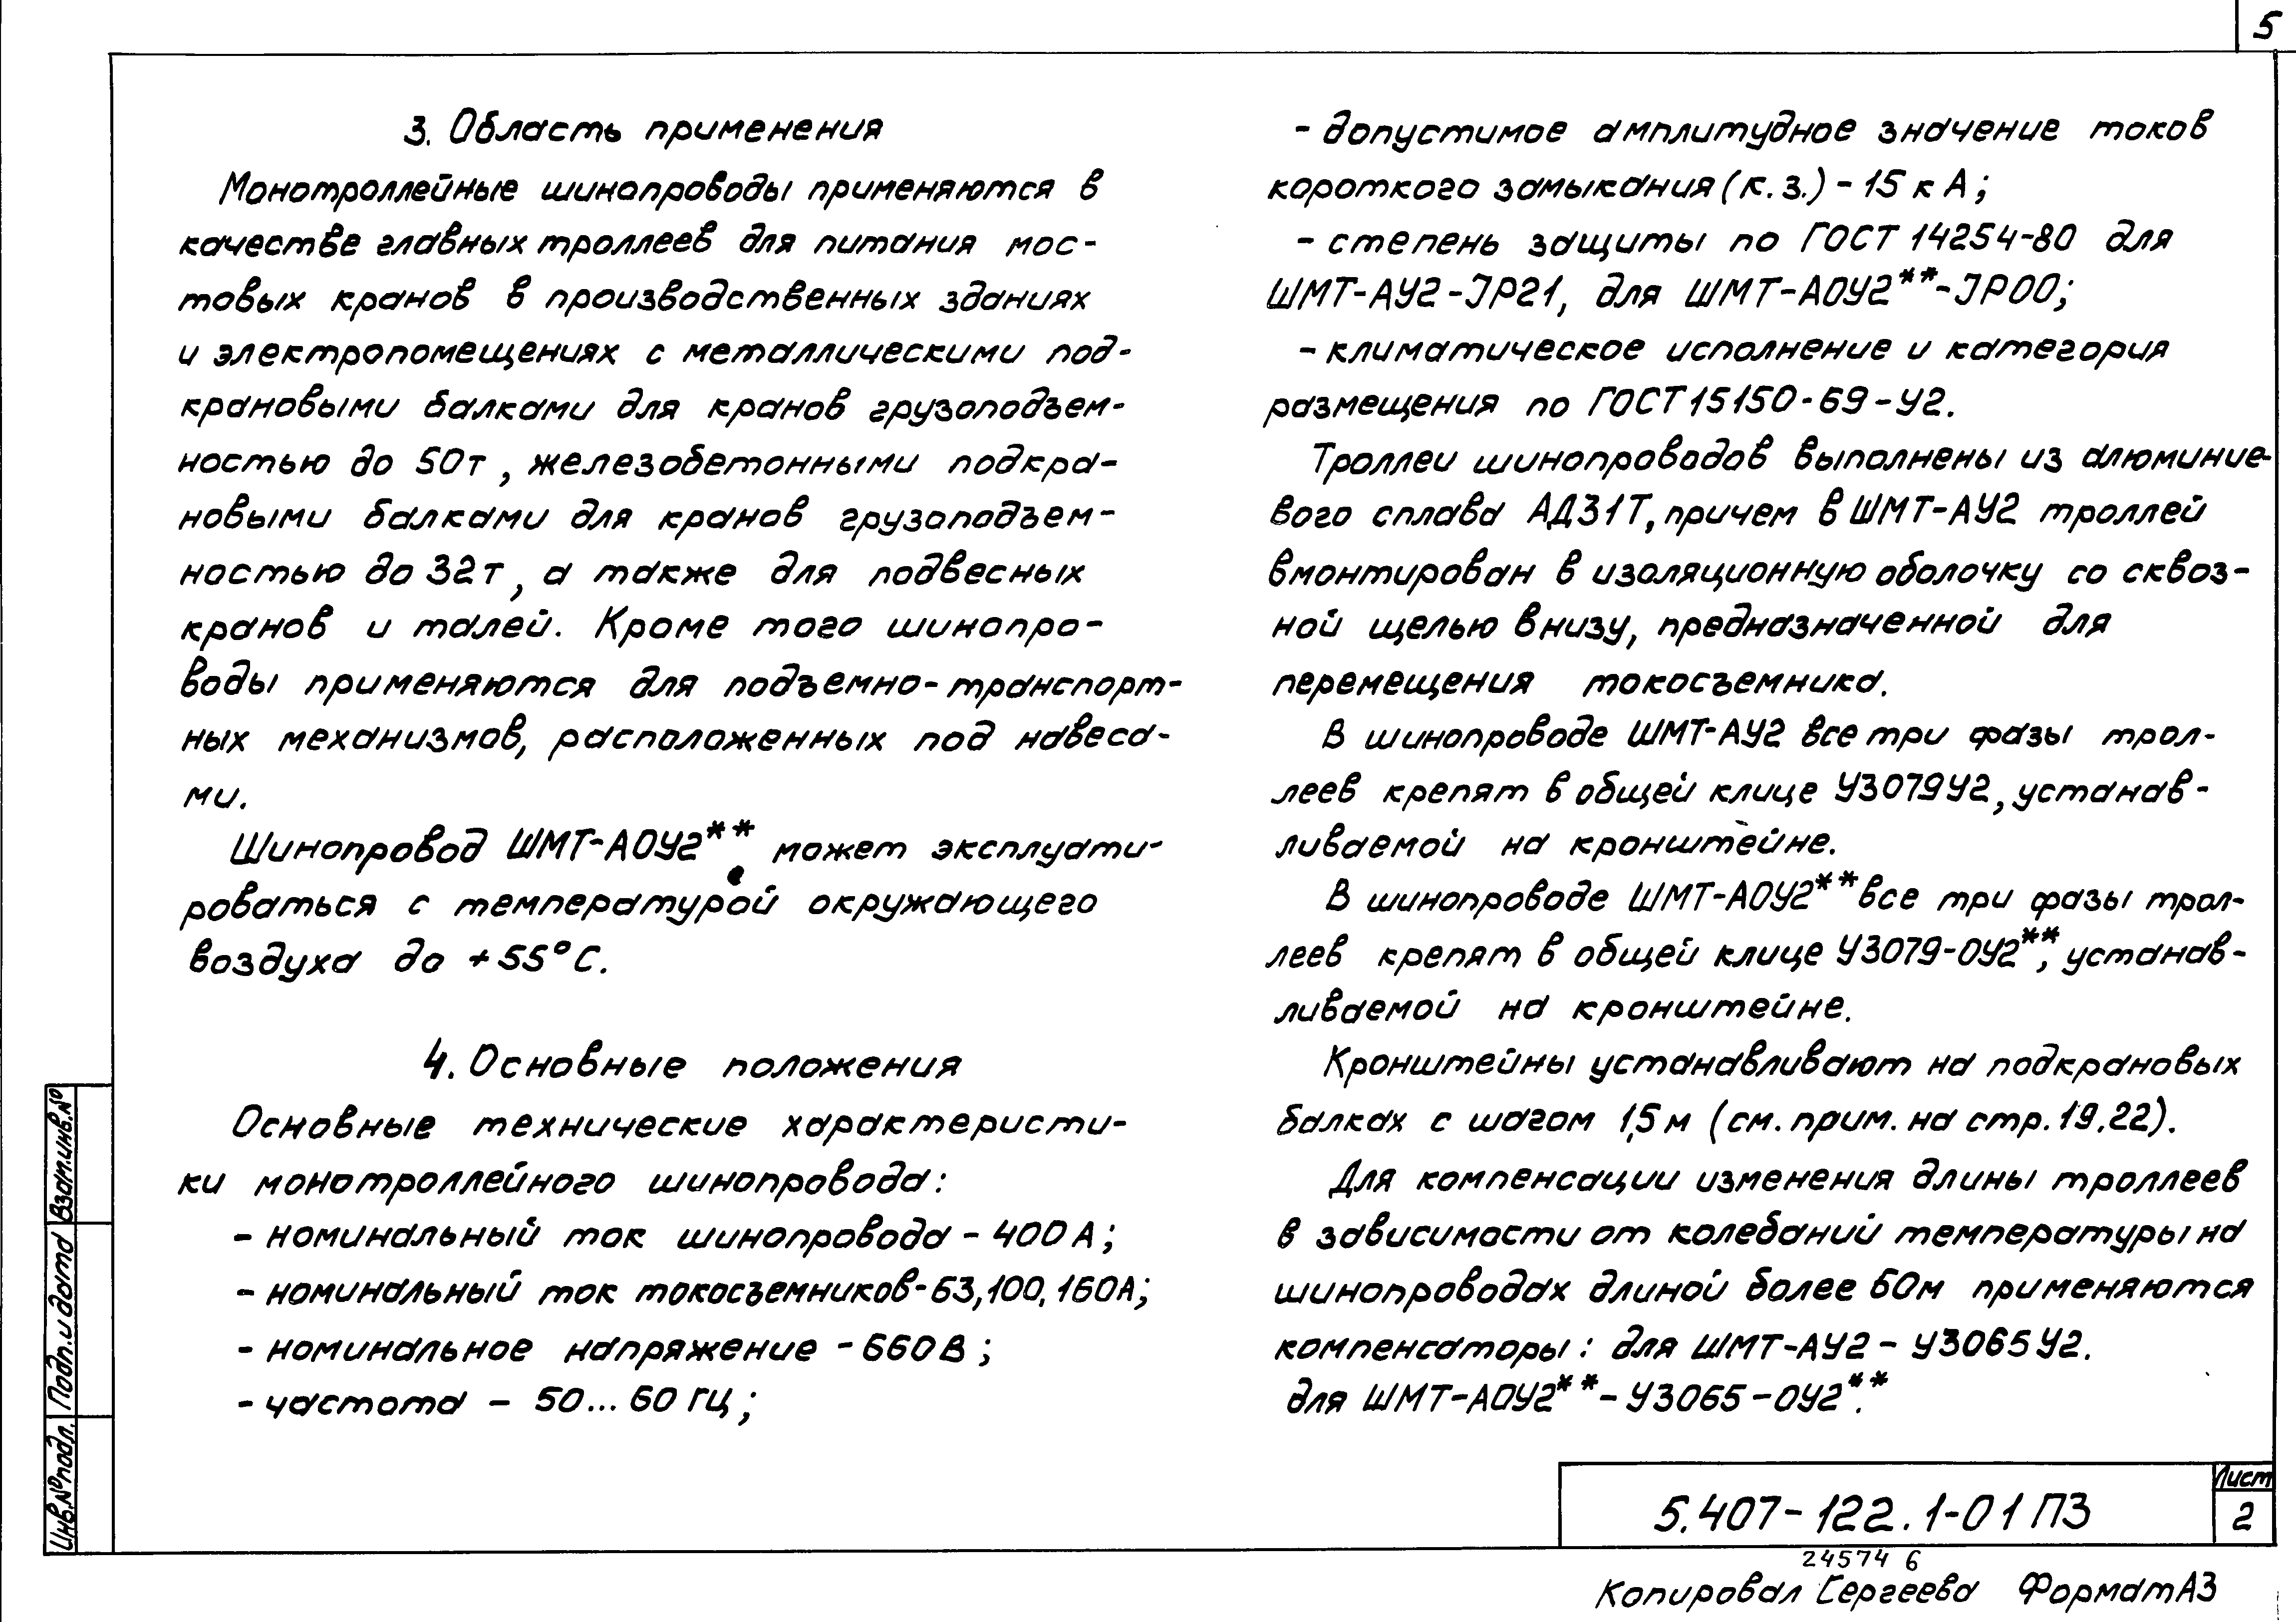 5
3. Область применения
Монотроллейные шинопроводы применяются в
качестве главных троллеев для питания мос-
товых кранов в производственных зданиях
и электропомещениях с металлическими под-
крановыми балками для кранов грузоподъем-
ностью до 50т, железобетонными подкра-
новыми балками для кранов грузоподъем-
ностью до 32т, а также для подвесных
кранов и талей. Кроме того шинопро-
воды применяются для подъемно-транспорт-
ных механизмов, расположенных под навеса-
ми.
Шинопровод ШМТ-А0У2** может эксплуати-
роваться с температурой окружающего
воздуха до +55°С.
4. Основные положения
Основные технические характеристи-
ки монотроллейного шинопровода:
- номинальный ток шинопровода - 400 А;
- номинальный ток токосъемников - 63, 100, 160А;
- номинальное напряжение - 660 В;
- частота - 50...60 Гц;
- допустимое амплитудное значение токов
короткого замыкания (к.з.) - 15 кА;
- степень защиты по ГОСТ 14254-80 для
ШМТ-АУ2-JР21, для ШМТ-А0У2**-JР00;
- климатическое исполнение и категория
размещения по ГОСТ 15150-69-У2.
Троллеи шинопроводов выполнены из алюминие-
вого сплава АД31Т, причем в ШМТ-АУ2 троллей
вмонтирован в изоляционную оболочку со сквоз-
ной щелью внизу, предназначенной для
перемещения токосъемника.
В шинопроводе ШМТ-АУ2 все три фазы трол-
леев крепят в общей клице У3079У2, устанав-
ливаемой на кронштейне.
В шинопроводе ШМТ-А0У2** все три фазы трол-
леев крепят в общей клице У3079-0У2**, устанав-
ливаемой на кронштейне.
Кронштейны устанавливают на подкрановых
балках с шагом 1,5 м (см. прим. на стр. 19, 22).
Для компенсации изменения длины троллеев
в зависимости от колебаний температуры на
шинопроводах длиной более 60м применяются
компенсаторы: для ШМТ-АУ2 - У3065У2.
для ШМТ-А0У2** - У3065-0У2**.
Инв.№подл. Подп.и дата Взам.инв.№
5.407-122.1-01 ПЗ
Лист
2
24574 6
Копировал Сергеева Формат А3